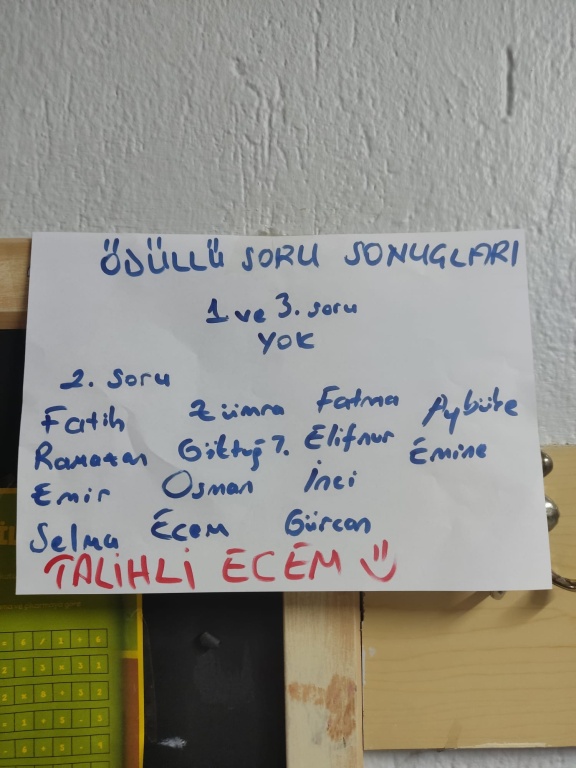 ÖDÜLLÜ SORU SONUÇLARI
1 ve 3. soru
YOK
2. soru
Fatih Zümra Fatma Aybüke
Ramazan Göktuğ 7. Elifnur Emine
Emir Osman İnci
Selma Ecem Gürcan
TALİHLİ ECEM